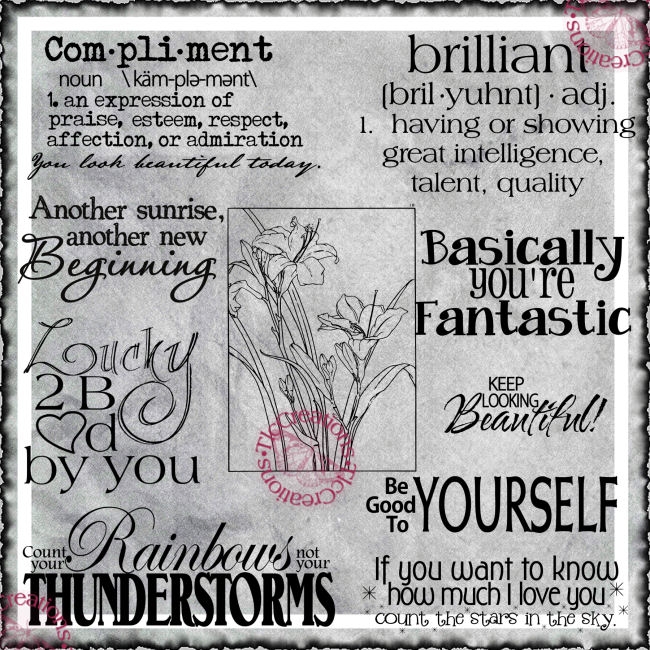 Com·pli·ment
noun \käm-plə-mənt\
1. an expression of
praise, esteem, respect,
affection, or admiration
You look beautiful today.
brilliant
(bril·yuhnt) · adj.
1. having or showing
great intelligence,
talent, quality
Another sunrise,
another new
Beginning
Basically
you're
Fantastic
Lucky
2 B
♡d
by you
KEEP
LOOKING
Beautiful!
Be
Good
To
YOURSELF
Count
your
Rainbows
not
your
THUNDERSTORMS
If you want to know
how much I love you
count the stars in the sky.
TicCreations·TicCreations·